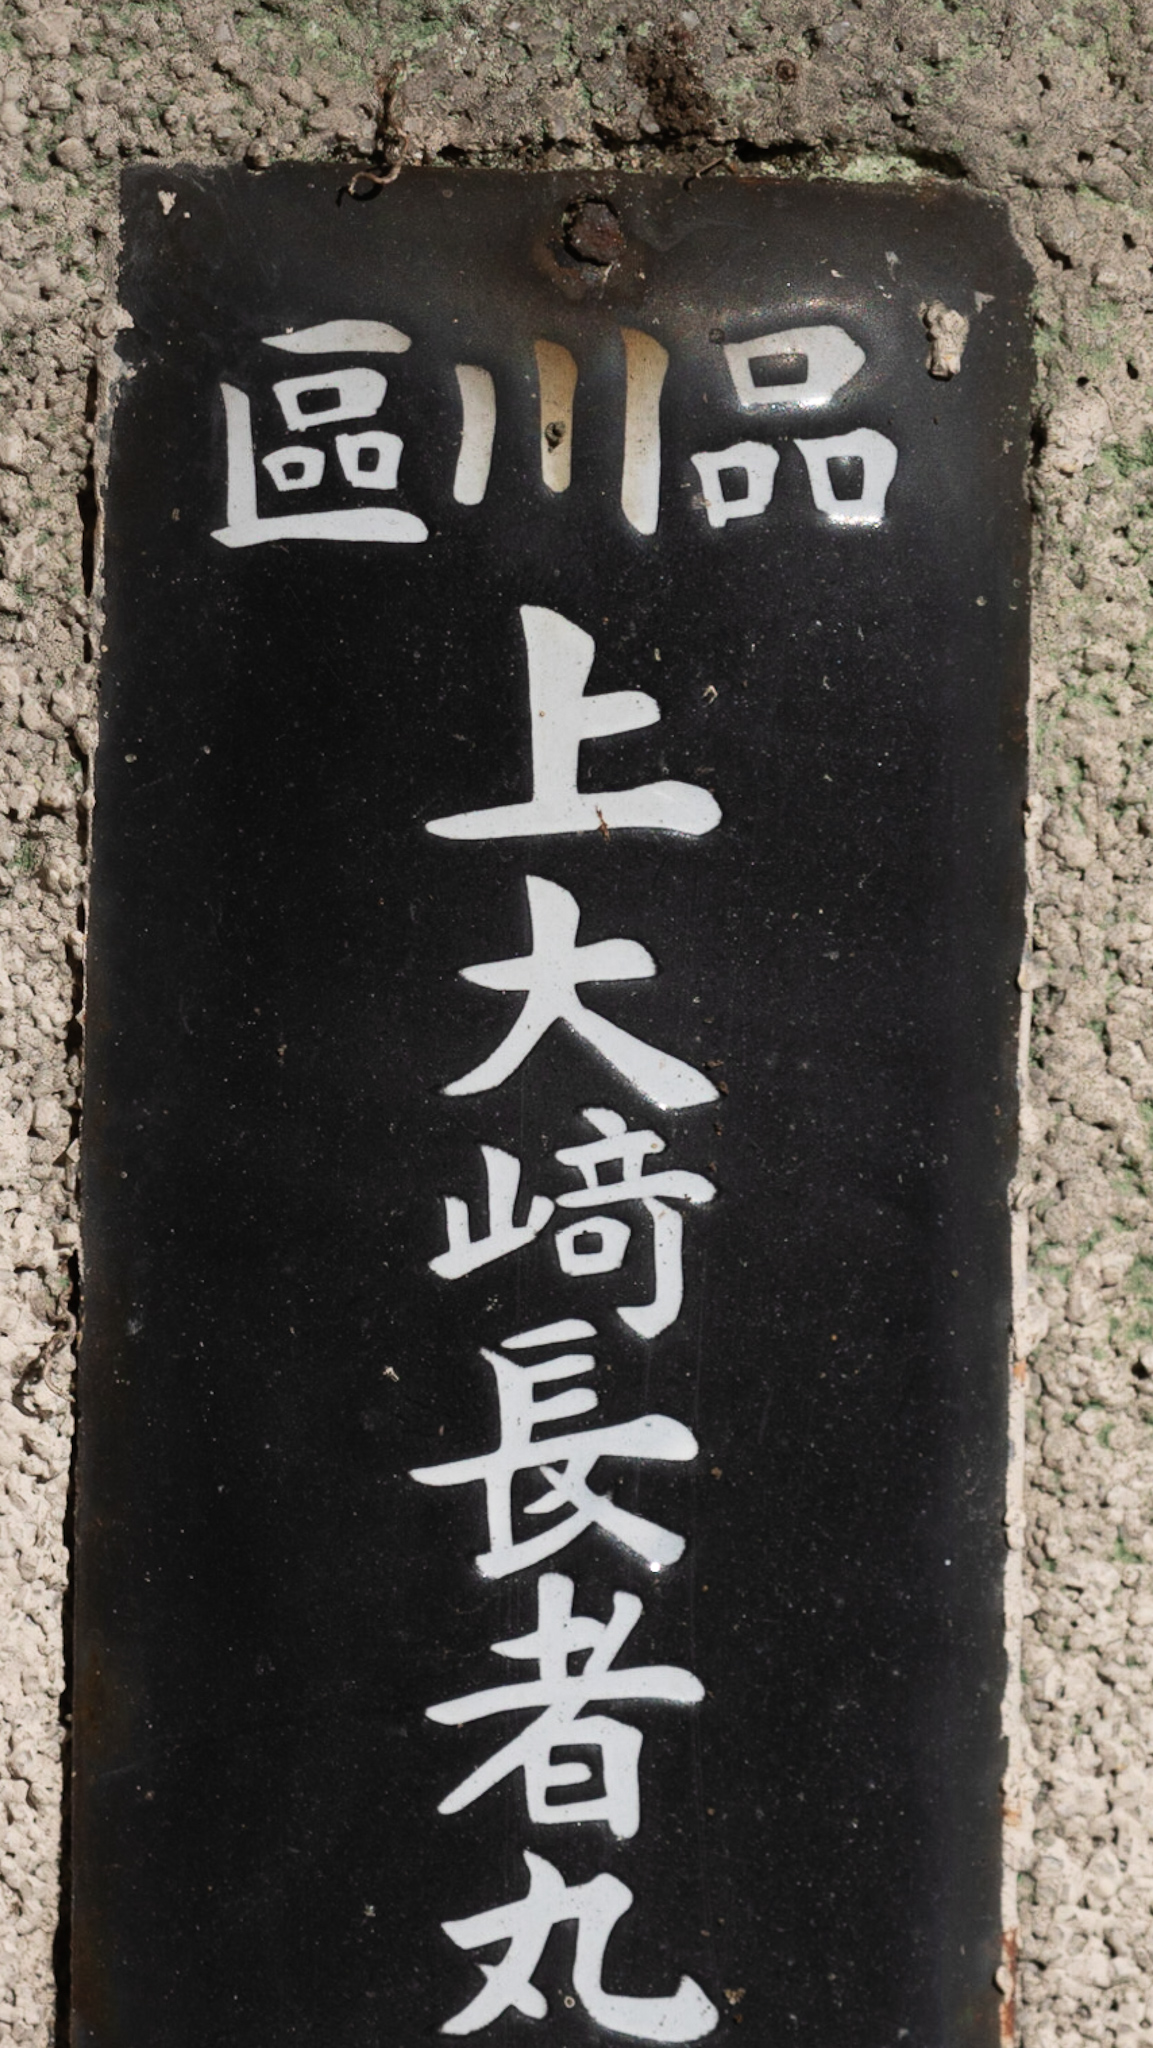 品川區
上大﨑長者丸